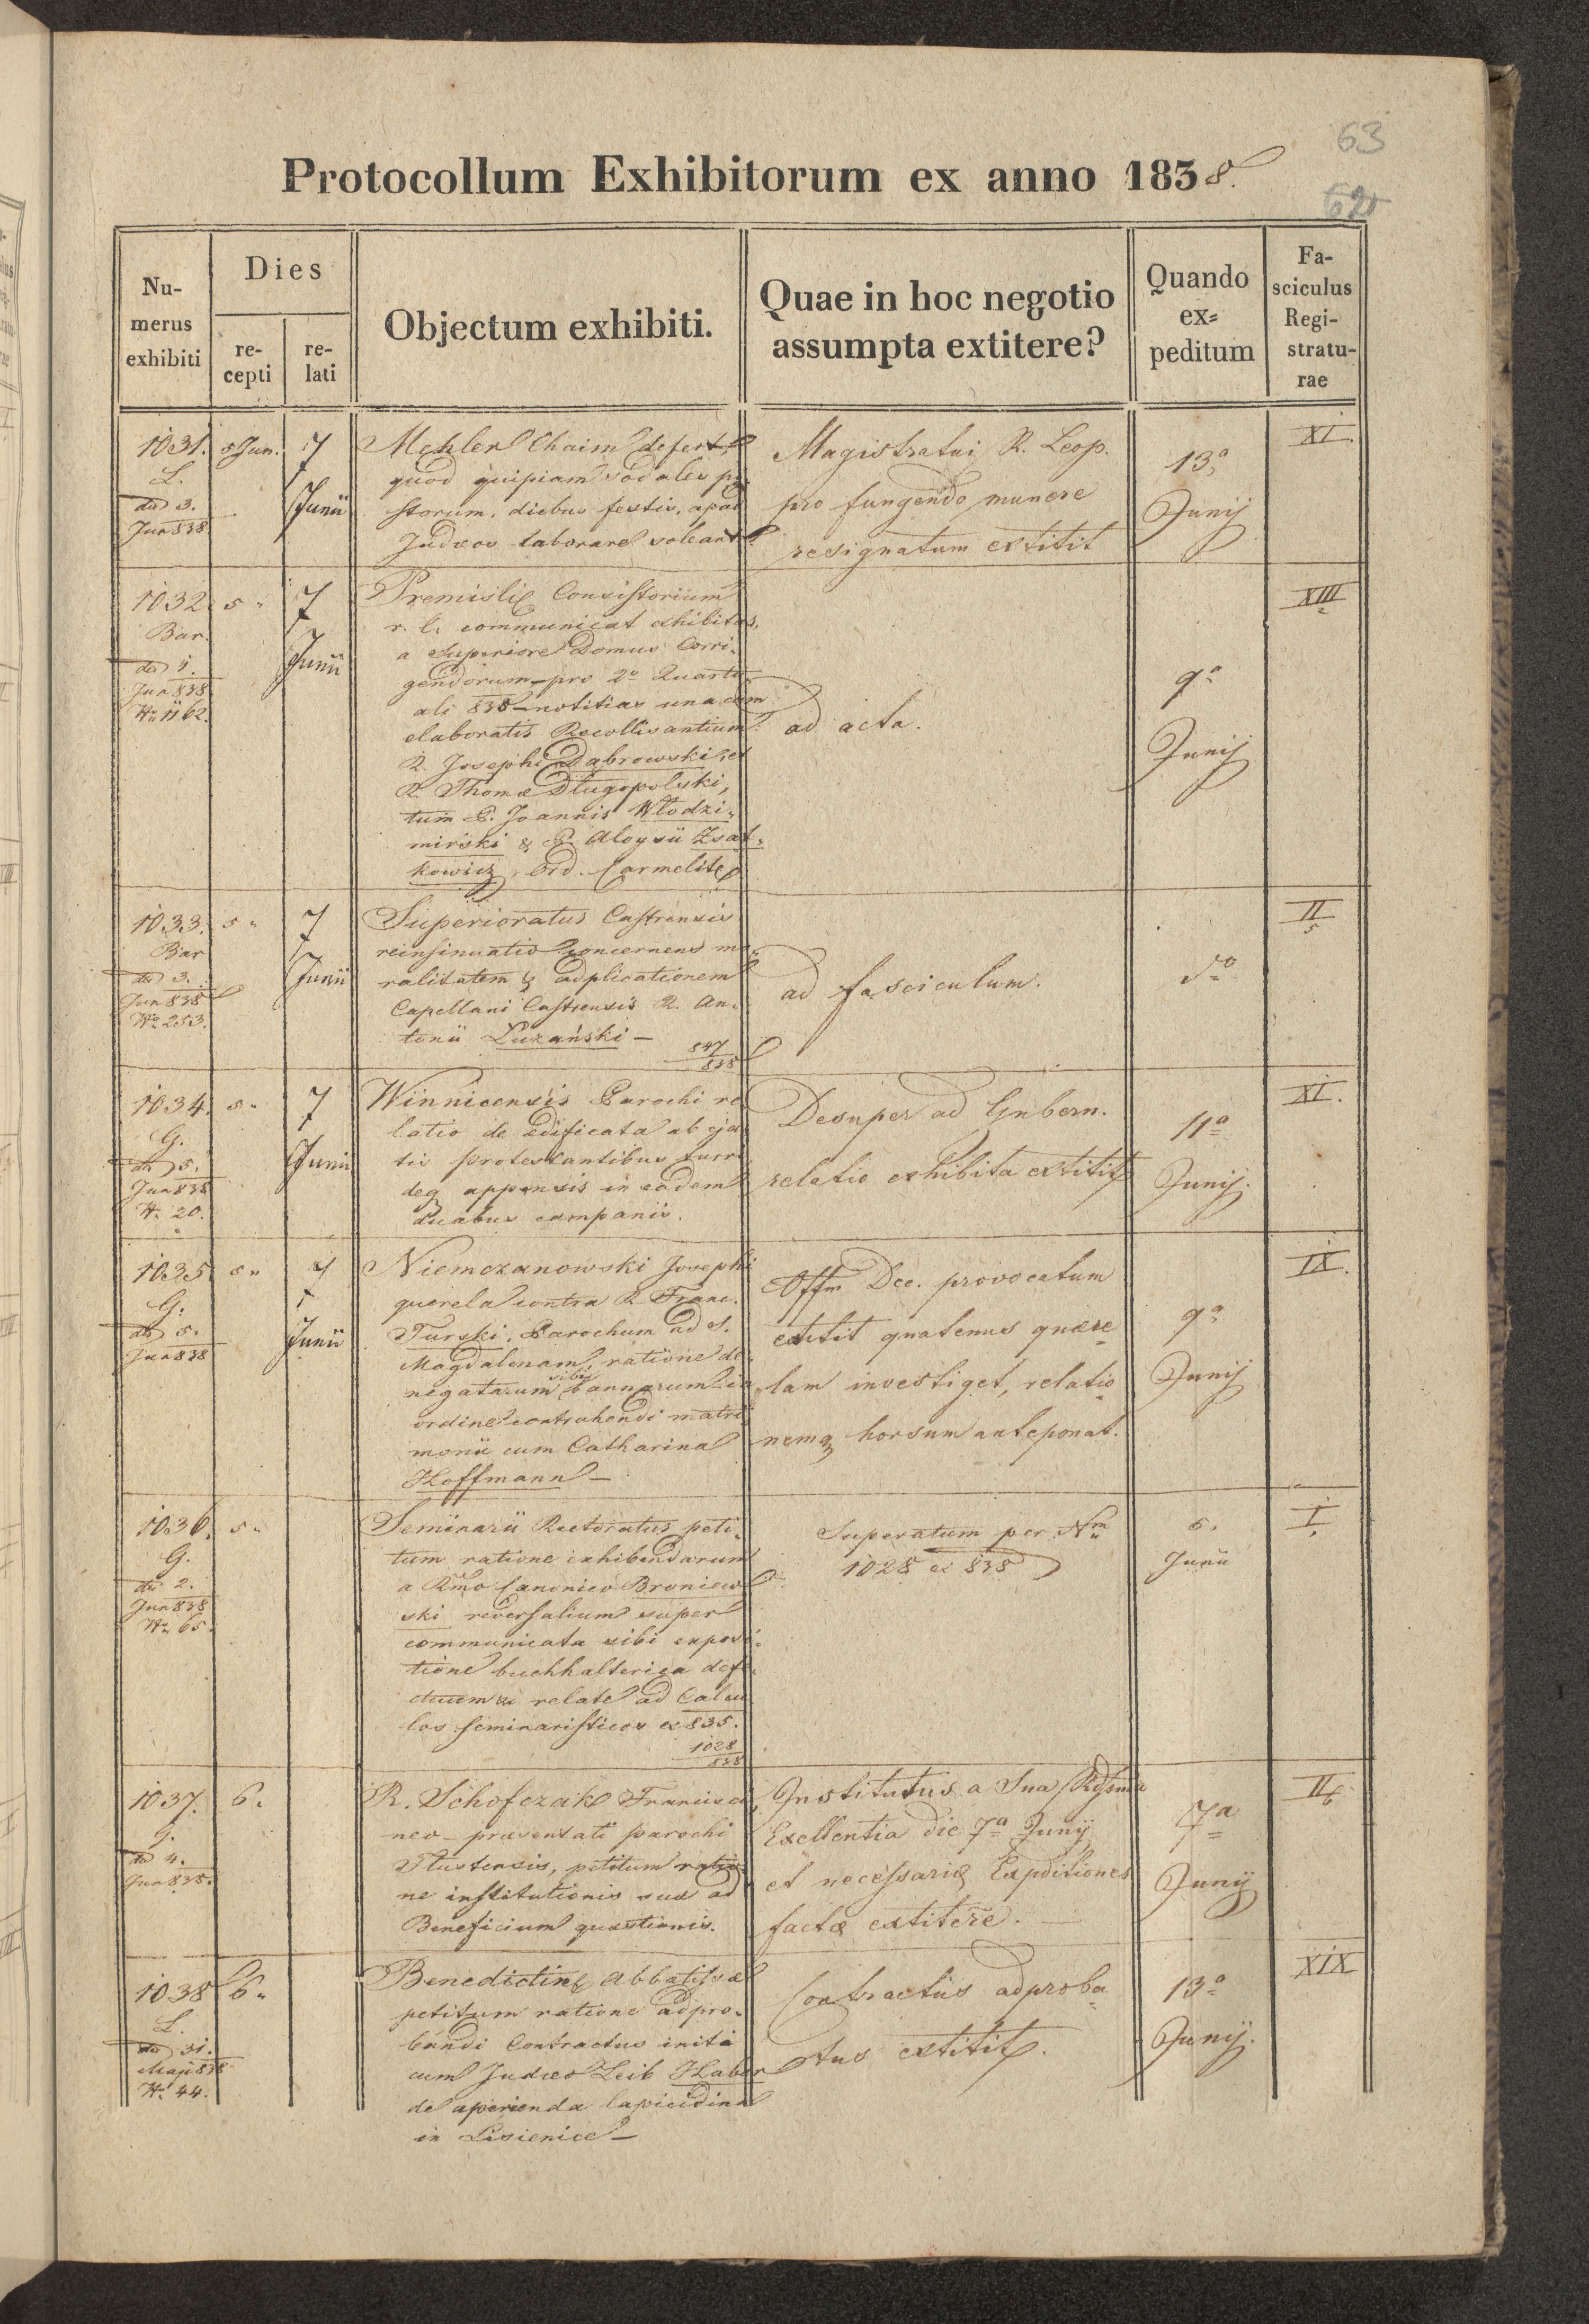 63
62
Protocollum Exhibitorum ex anno 1838.
Nu-
merus
exhibiti
Dies
re-
cepti
re-
lati
Objectum exhibiti.
Quae in hoc negotio
assumpta extitere?
Quando
ex=
peditum
Fa-
sciculus
Regi-
stratu-
rae
1031.
L.
dto 3.
Jun 838
5 Jun.
7
Junii
Mehler Chaim defert,
quod quipiam sodales pi-
storum, diebus festis, apud
Judæos laborare soleant
Magistratui R. Leop.
pro fungendo munere
resignatum extitit
13a
Junij
XI.
1032.
Bar.
dto 1.
Jun 838
No 1162.
5 "
7
Junii
Premisliæ Consistorium
r. l. communicat exhibitas,
a Superiore Domus Corri-
gendorum pro 2o Quarta-
ali 838 notitias una cum
elaboratis Recollisantium
R. Josephi Dąbrowski, et
R. Thomæ Długopolski,
tum P. Joannis Włodzi-
mirski & P. Aloysii Zsat-
kowicz, Ord. Carmelitæ
ad acta.
9a
Junij
XIII
1033.
Bar
dto 3.
Jun 838
No 253.
5 "
7
Junii
Superioratus Castrensis
reinsinuatio concernens mo-
ralitatem & adplicationem
Capellani Castrensis R. An-
tonii Luzański —
847
838
ad fasciculum.
do
II
5
1034.
G.
dto 5.
Jun 838
No 20.
5 "
7
Junii
Winnicensis Parochi re
latio de ædificata ab eja
tis protestantibus turri
deq appensis in eadem
duabus campanis.
Desuper ad Gubern.
relatio exhibita extitit
11a
Junij.
XI.
1035
G.
dto 5.
Jun 838
5 "
7
Junii
Niemczanowski Josephi
querela contra R. Franc.
Turski, Parochum ad S.
Magdalenam, ratione de-
negatarum sibi bannorum in
ordine contrahendi matri
monii cum Catharina
Hoffmann —
Offm Dec. provocatum
extitit quatenus quære-
lam investiget, relatio-
nemq horsum anteponat.
9a
Junij
IX.
1036.
G.
dto 2.
Jun 838
No 65.
5 "
Seminarii Rectoratus peti-
tum ratione exhibendarum
a Rmo Canonico Broniew
ski reversalium super
communicata sibi exposi-
tione buchhalterica defe-
ctuum relate ad Calcu
los seminaristicos ex 835.
1028
838
Superatum per Nm
1028 ex 838
5.
Junii
I.
1037.
G.
dto 4.
Jun 838.
6.
R. Schofczak Francisci,
neo-præsentati parochi
Tlustensis, petitum ratio-
ne institutionis suæ ad
Beneficium quæstionis.
Institutus a Sua
Excellentia die 7a Junij
et necessariæ Expeditiones
factæ extitere. —
7a
Junij
II
6
1038
L.
dto 31.
Maji 838
No 44.
6.
Benedictinæ Abbatissæ
petitum ratione adpro-
bandi Contractus initi
cum Judæo Leib Haber
de aperienda lapicidina
in Lisienice —
Contractus adproba-
tus extitit.
13a
Junij.
XIX